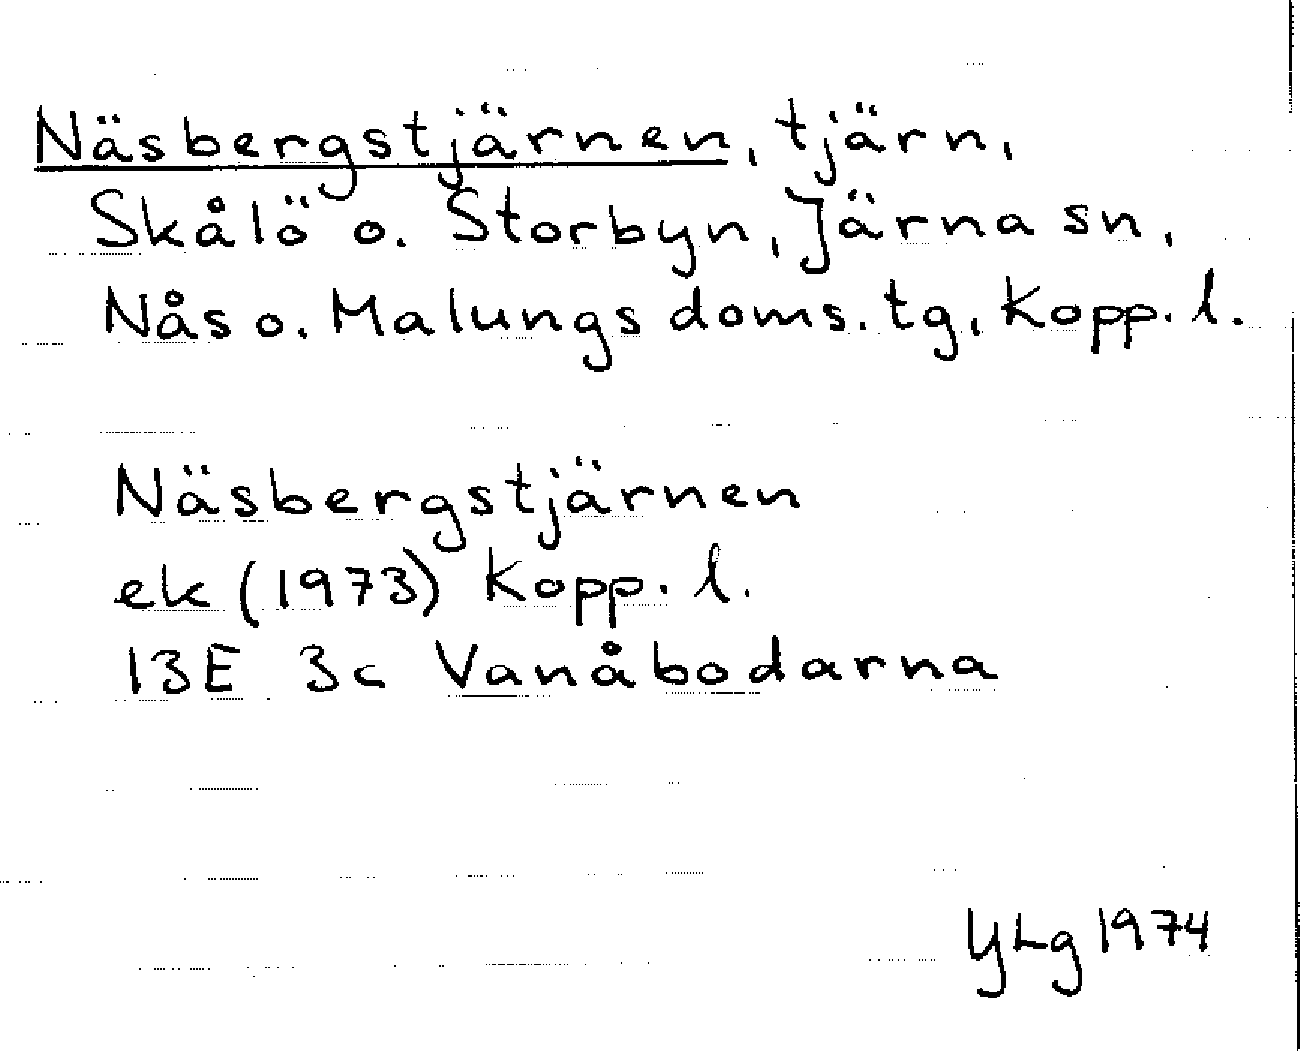 Näsbergstjärnen, tjärn,
Skålö o. Storbyn, Järna sn,
Nås o. Malungs doms. tg, Kopp. l.
Näsbergstjärnen
ek (1973) Kopp. l.
13E 3c Vanåbodarna
YLg 1974